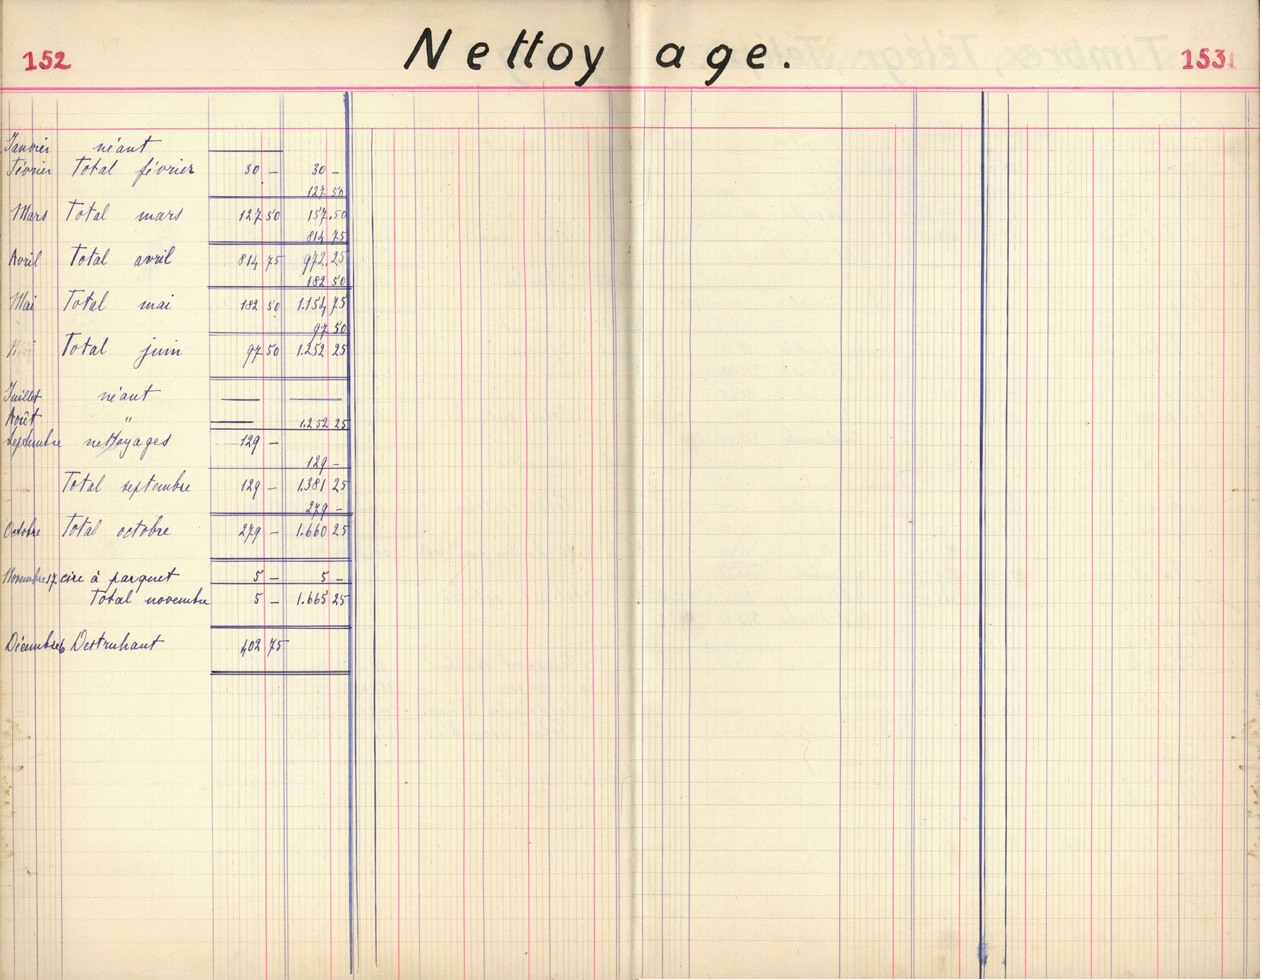 152 Nettoyage. 153
Janvier néant
Février Total février 30 — 30 —
127 50
Mars Total mars 127 50 157.50
814 75
Avril Total avril 814 75 972.25
182 50
Mai Total mai 182 50 1.154 75
97 50
Total juin 97 50 1.252 25
Juillet néant — —
Août " — 1.252 25
Septembre nettoyages 129 —
129 —
Total septembre 129 — 1.381 25
279 —
Octobre Total octobre 279 — 1.660 25
Novembre 17 cire à parquet 5 — 5 —
Total novembre 5 — 1.665 25
Décembre 6 402 75